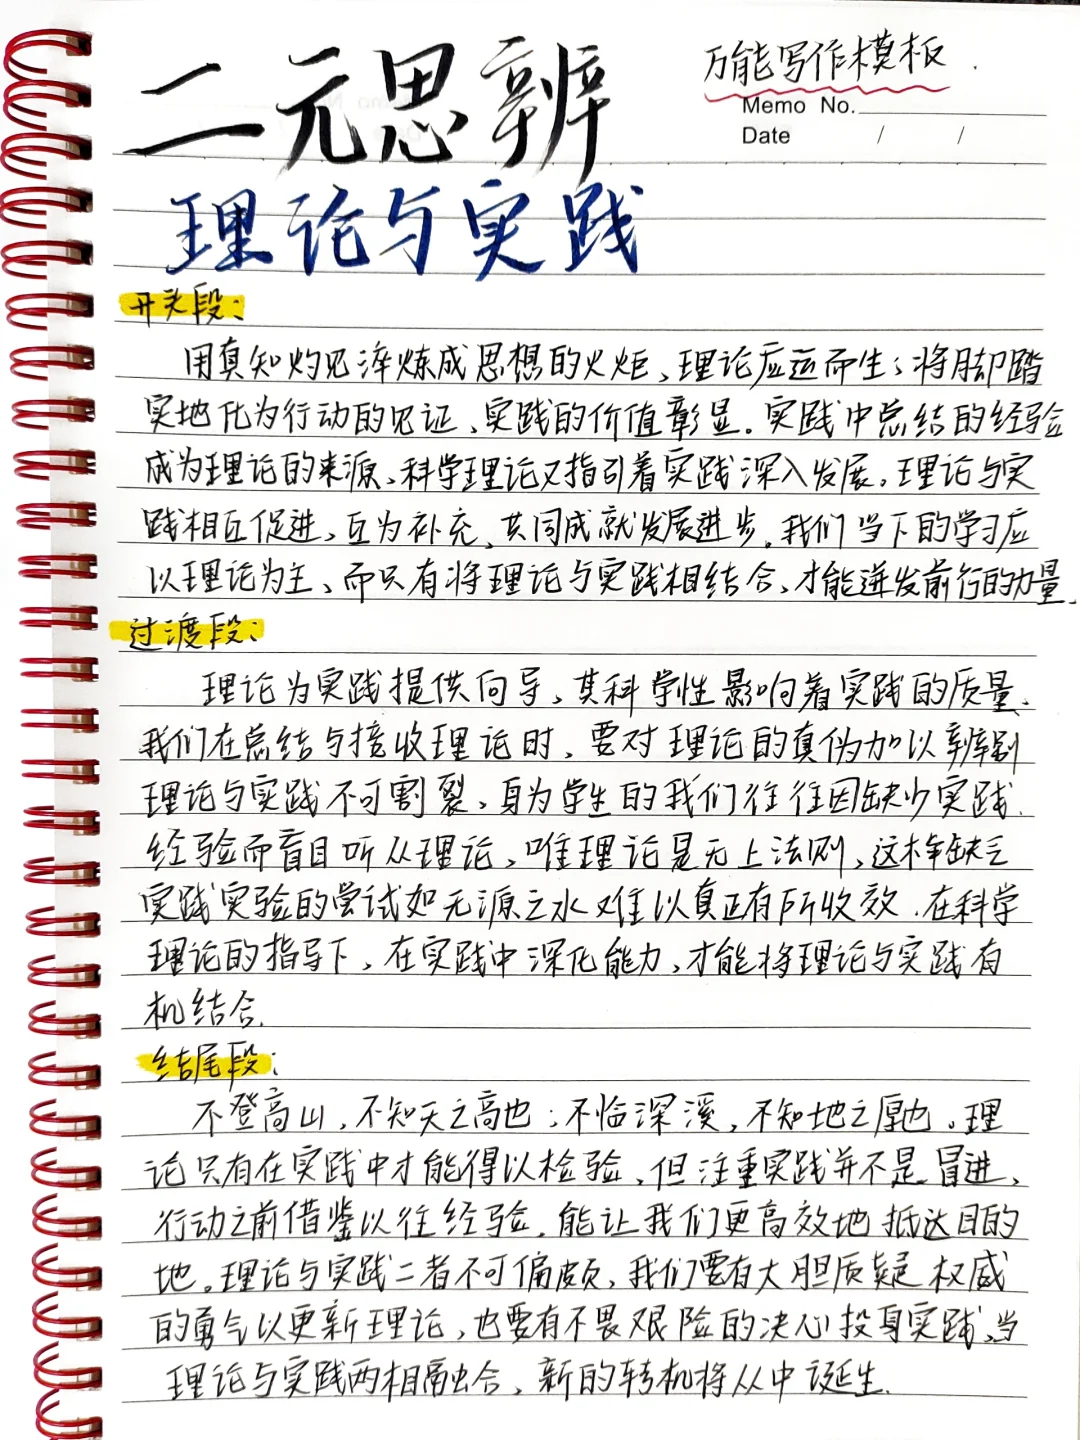 二元思辨
万能写作模板.
Memo No.
Date / /
理论与实践
开头段:
用真知灼见淬炼成思想的火炬、理论应运而生;将脚踏
实地化为行动的见证、实践的价值彰显.实践中总结的经验
成为理论的来源、科学理论又指引着实践深入发展.理论与实
践相互促进、互为补充、共同成就发展进步.我们当下的学习应
以理论为主、而只有将理论与实践相结合、才能迸发前行的力量.
过渡段:
理论为实践提供向导、其科学性影响着实践的质量、
我们在总结与接收理论时、要对理论的真伪加以辨别
理论与实践不可割裂、身为学生的我们往往因缺少实践
经验而盲目听从理论、唯理论是无上法则、这样缺乏
实践实验的尝试如无源之水难以真正有所收效.在科学
理论的指导下、在实践中深化能力、才能将理论与实践有
机结合.
结尾段:
不登高山,不知天之高也;不临深溪,不知地之厚也。理
论只有在实践中才能得以检验、但注重实践并不是冒进、
行动之前借鉴以往经验.能让我们更高效地抵达目的
地。理论与实践二者不可偏颇、我们要有大胆质疑权威
的勇气以更新理论、也要有不畏艰险的决心投身实践、当
理论与实践两相融合、新的转机将从中诞生.